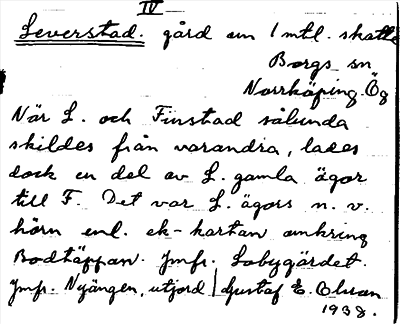 IV
Leverstad. gård um 1 mtl. skatte
Borgs sn
Norrköping. Ög
När L. och Finstad sålunda
skildes från varandra, lades
dock en del av L. gamla ägor
till F. Det var L. ägors n. v.
hörn enl. ek-kartan omkring
Bodtäppan. Jmfr. Lobygärdet.
Jmfr. Nyängen, utjord / Gustaf E. Olsson
1938.